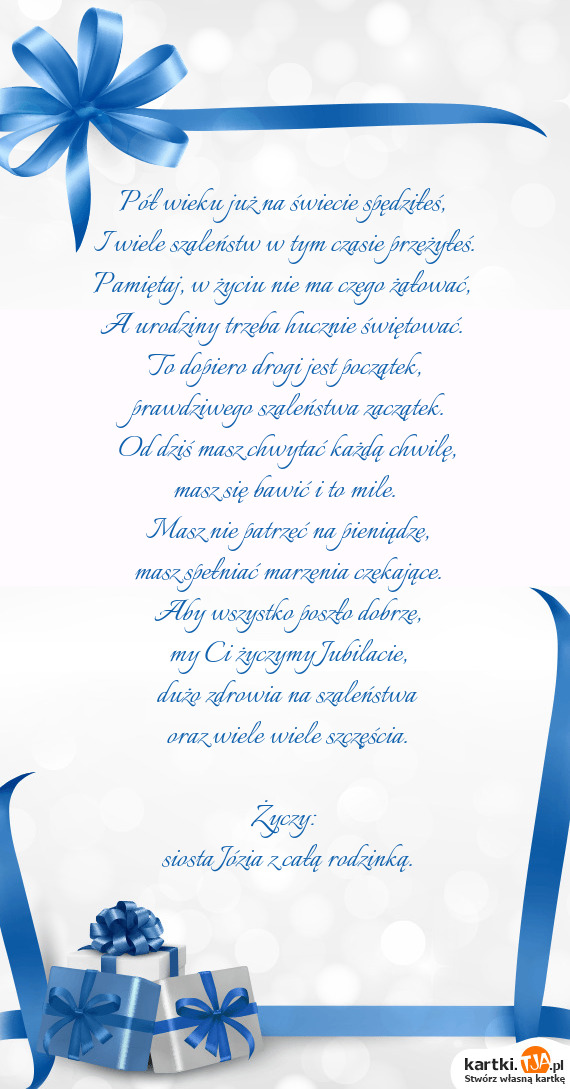 Pół wieku już na świecie spędziłeś,
I wiele szaleństw w tym czasie przeżyłeś.
Pamiętaj, w życiu nie ma czego żałować,
A urodziny trzeba hucznie świętować.
To dopiero drogi jest początek,
prawdziwego szaleństwa zaczątek.
Od dziś masz chwytać każdą chwilę,
masz się bawić i to mile.
Masz nie patrzeć na pieniądze,
masz spełniać marzenia czekające.
Aby wszystko poszło dobrze,
my Ci życzymy Jubilacie,
dużo zdrowia na szaleństwa
oraz wiele wiele szczęścia.
Życzy:
siosta Józia z całą rodzinką.
kartki.TJA.pl
Stwórz własną kartkę